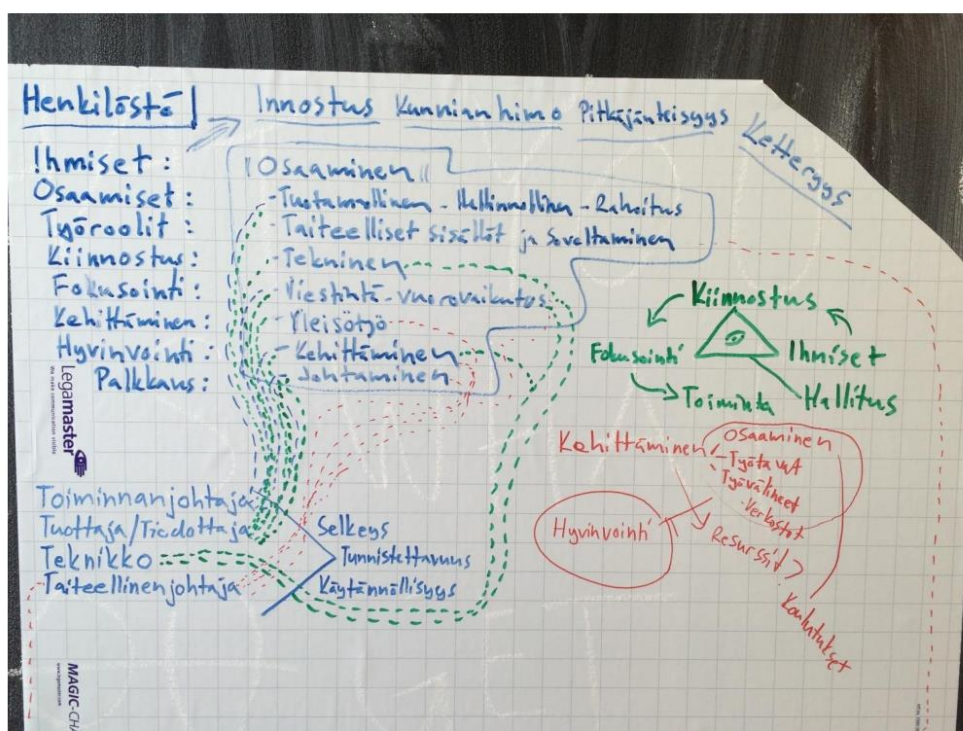 Henkilöstö! Innostus Kunnianhimo Pitkäjänteisyys Ketteryys
Ihmiset:
Osaamiset:
Työroolit:
Kiinnostus:
Fokusointi:
Kehittäminen:
Hyvinvointi:
Palkkaus:
"Osaaminen"
- Tuotannollinen - Hallinnollinen - Rahoitus
- Taiteelliset sisällöt ja soveltaminen
- Tekninen
- Viestintä - vuorovaikutus
- Yleisötyö
- Kehittäminen
- Johtaminen
Kiinnostus
Fokusointi
Ihmiset
Toiminta
Hallitus
Kehittäminen
Osaaminen
- Työtavat
Työvälineet
Verkostot
Resurssit?
Koulutukset
Hyvinvointi
Toiminnanjohtaja
Tuottaja/Tiedottaja
Teknikko
Taiteellinen johtaja
Selkeys
Tunnistettavuus
Käytännöllisyys
Legamaster
We make communication visible
MAGIC-CHA